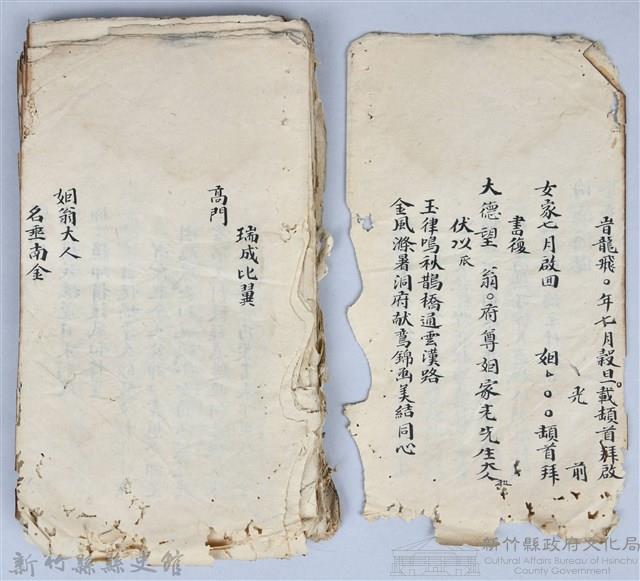 旹龍飛○年七月穀旦載頴首拜啟
光前
女家七月啟回 姻卜○○頴首拜
書復
大德望 翁○府尊姻家老先生大人
伏以辰
玉律鳴秋鵲橋通雲漢路
金風滌暑洞府献鸾錦画美結同心
瑞成比翼
髙門
姻翁大人
名垂南金
新竹縣縣史館
新竹縣政府文化局
Cultural Affairs Bureau of Hsinchu
County Government